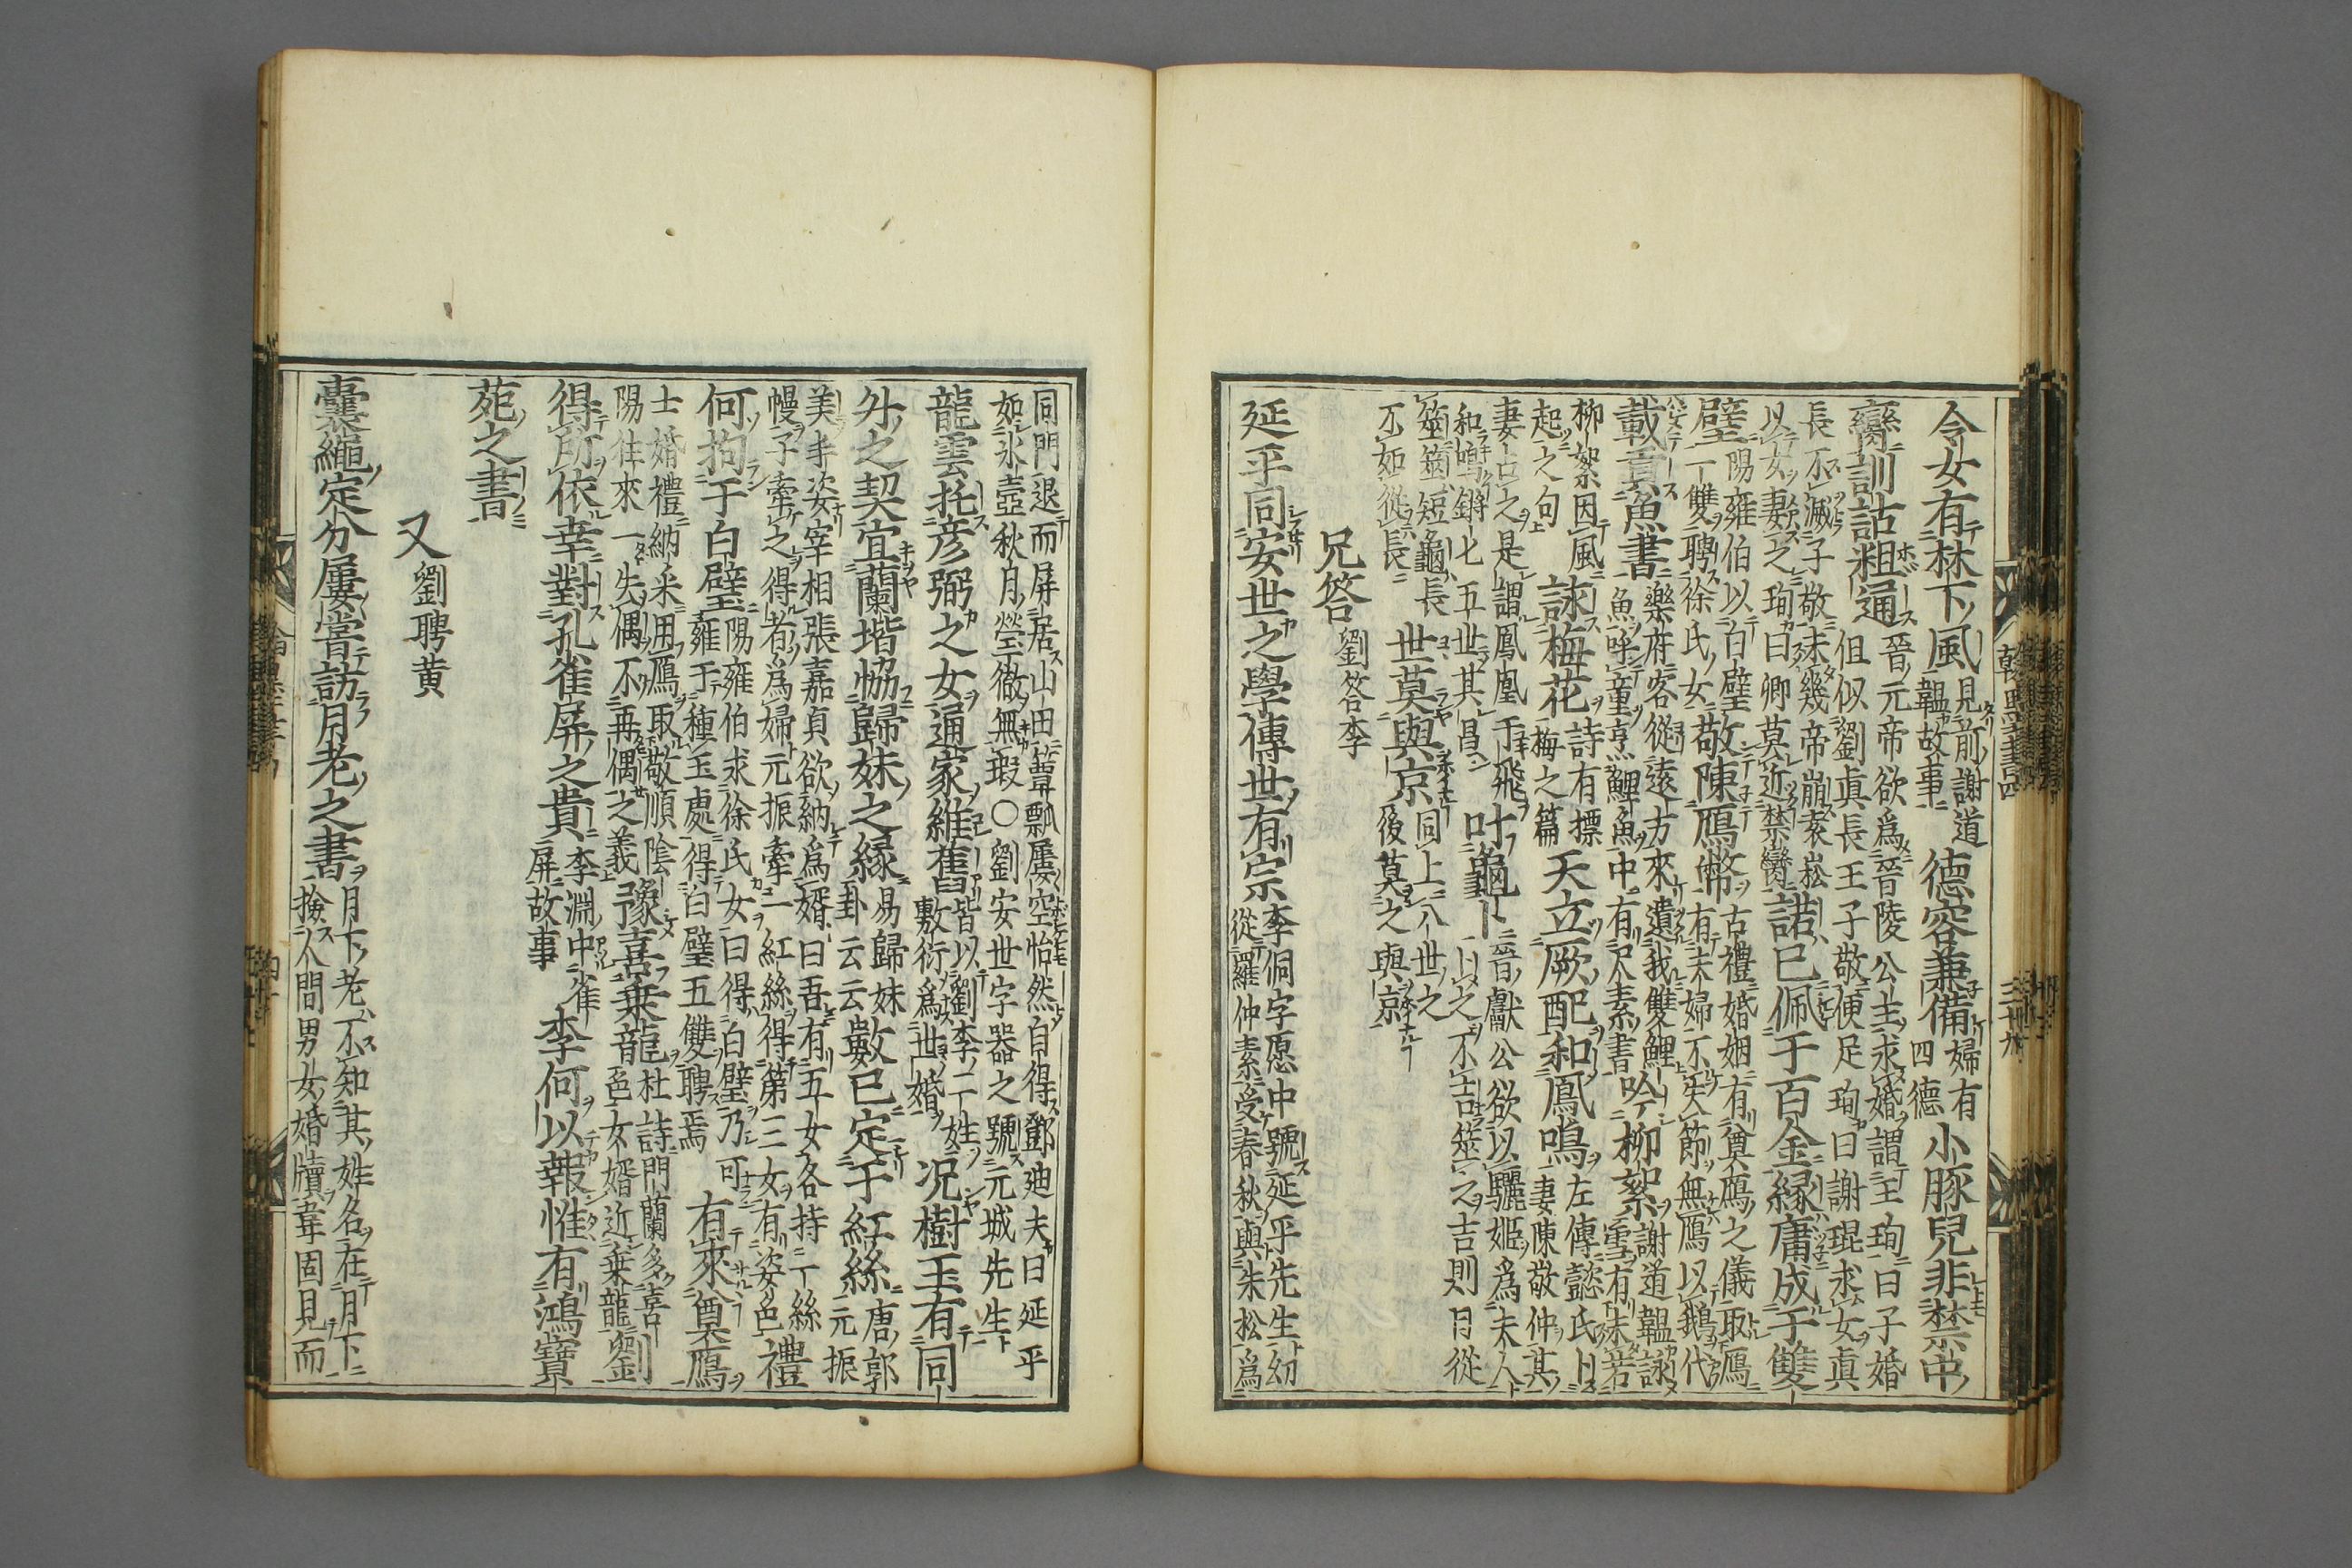 令女有林下風見前謝道韞故事德容兼備婦有四德小豚兒非禁中
臠訓詁粗通晉元帝欲爲晉陵公主求婚謂王珣曰子婚但似劉眞長王子敬便足珣曰謝琨求女眞
長不減子敬未幾帝崩袁崧以女妻之珣曰卿莫近禁臠諾已佩于百金縁庸成于雙
璧陽雍伯以白璧一雙聘徐氏女敬陳鴈幣古禮婚姻有奠鴈之儀取鴈有夫婦不失節無鴈以鵝代
載貢魚書樂府客從遠方來遺我雙鯉魚呼童烹鯉魚中有尺素書吟柳絮謝道韞詠雪有未若
柳絮因風起之句詠梅花詩有摽梅之篇天立厥配和鳳鳴左傳懿氏卜妻陳敬仲其
妻占之是謂鳳凰于飛和鳴鏘七五世其昌叶龜卜晉獻公欲以驪姬爲夫人卜之不吉筮之吉則曰從
筮筮短龜長不如從長世莫與京同上八世之後莫之與京
兄答劉答李
延平同安世之學傳世有宗李侗字愿中號延平先生幼從羅仲素受春秋與朱松爲
同門退而屏居山田簞瓢屢空怡然自得鄧廸夫曰延平如氷壺秋月瑩徹無瑕○劉安世字器之號元城先生
龍雲托彦弼之女通家維舊皆以劉李二姓敷衍爲世婚况樹玉有同
舛之契宜蘭堦恊歸妹之縁易歸妹卦云云數已定于紅絲唐郭元振
美丰姿宰相張嘉貞欲納爲婿曰吾有五女各持一絲幔子牽之得者爲婦元振牽一紅絲得第三女有姿色禮
何拘于白璧陽雍伯求徐氏女曰得白璧乃可雍于種玉處得白璧五雙聘焉有來奠鴈
士婚禮納采用鴈取敬順陰陽往來一失偶不再偶之義豫喜乗龍杜詩門蘭多喜色女婿近乗龍劉
得所依幸對孔雀屏之貴李淵中雀屏故事李何以報惟有鴻寶
苑之書
又劉聘黄
囊繩定分屢嘗訪月老之書月下老不知其姓名在月下撿人間男女婚牘韋固見而